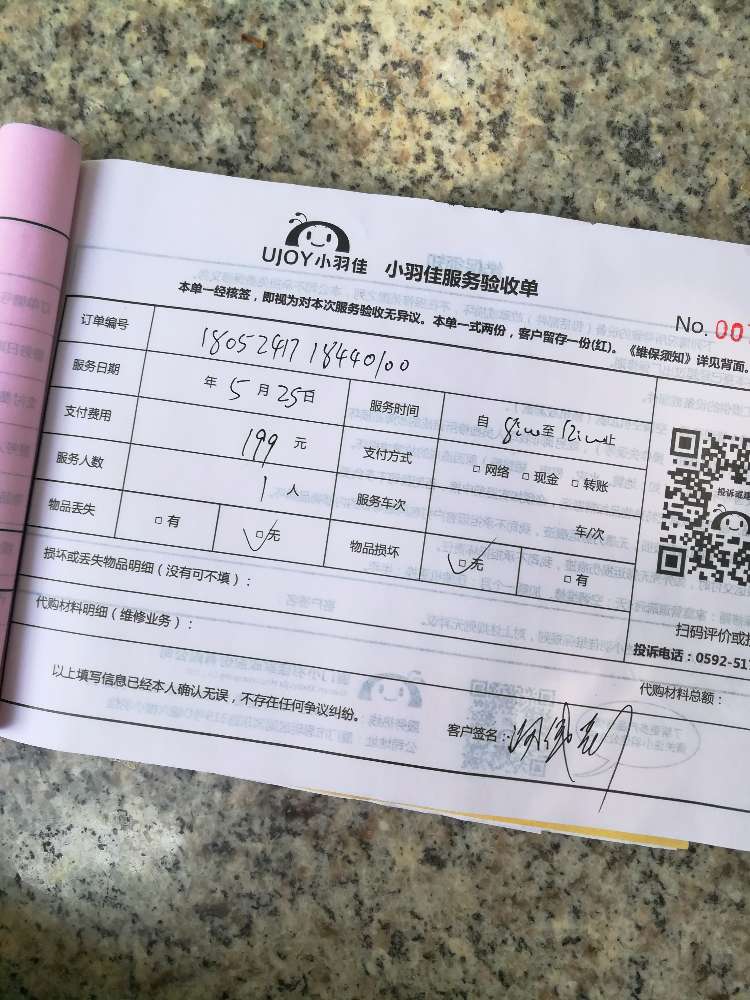 UJOY小羽佳 小羽佳服务验收单
No. 00
本单一经核签，即视为对本次服务验收无异议。本单一式两份，客户留存一份(红)。《维保须知》详见背面。
订单编号 1805241718440100
服务日期 年 5 月 25 日 服务时间 自 8:00 至 12:00 止
支付费用 199 元 支付方式 □ 网络 □ 现金 □ 转账
服务人数 1 人 服务车次 车/次
物品丢失 □ 有 □ 无 物品损坏 □ 无 □ 有
损坏或丢失物品明细（没有可不填）：
代购材料明细（维修业务）：
代购材料总额：
投诉或
扫码评价或
投诉电话：0592-51
以上填写信息已经本人确认无误，不存在任何争议纠纷。
客户签名：